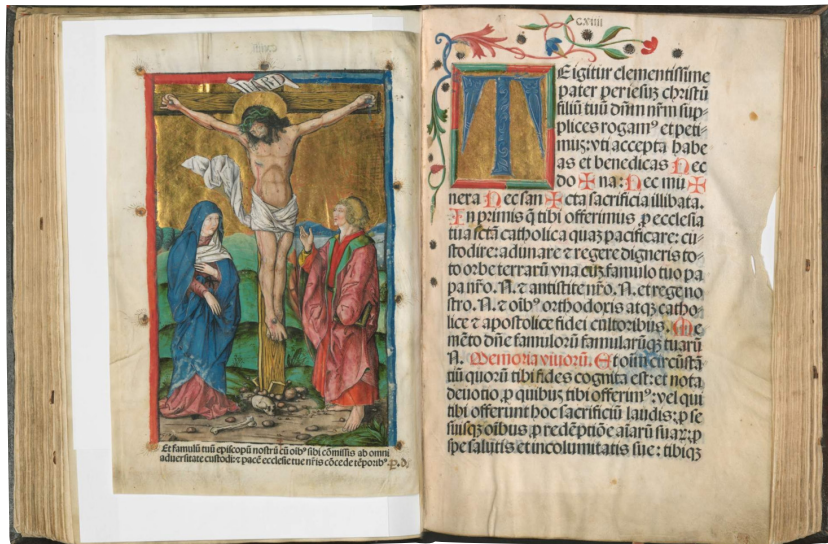 INRI
Et famulū tuū episcopū nostrū cū oībꝰ sibi cōmissis ab omni
aduersitate custodi: ⁊ pacē ecclesie tue nr̄is cōcede tēporibꝰ. p. d.
CXIIII
TE igitur clementissime
pater per iesuꝫ christū
filiū tuū dn̄m nr̄m sup⸗
plices rogamꝰ et peti⸗
muꝫ: vti accepta habe
as et benedicas Hec
do ✠ na: Hec mu ✠
nera Hec san ✠ cta sacrificia illibata.
In primis q̄ tibi offerimus ꝓ ecclesia
tua sctā catholica quaꝫ pacificare: cu⸗
stodire: adunare ⁊ regere digneris to⸗
to orbe terrarū vna cuꝫ famulo tuo pa
pa nr̄o. N. ⁊ antistite nr̄o. N. et rege no
stro. N. ⁊ oībꝰ orthodoxis atqꝫ catho⸗
lice ⁊ apostolice fidei cultoribus. Me
mēto dn̄e famulorū famularūqꝫ tuarū
N. Memoria viuorū. Et oīm circūstā
tiū quorū tibi fides cognita est: et nota
deuotio ꝓ quibus tibi offerimꝰ: vel qui
tibi offerunt hoc sacrificiū laudis: ꝓ se
suisqꝫ oībus ꝓ redēptiōe aīarū suaꝝ: ꝓ
spe salutis et incolumitatis sue: tibiqꝫ